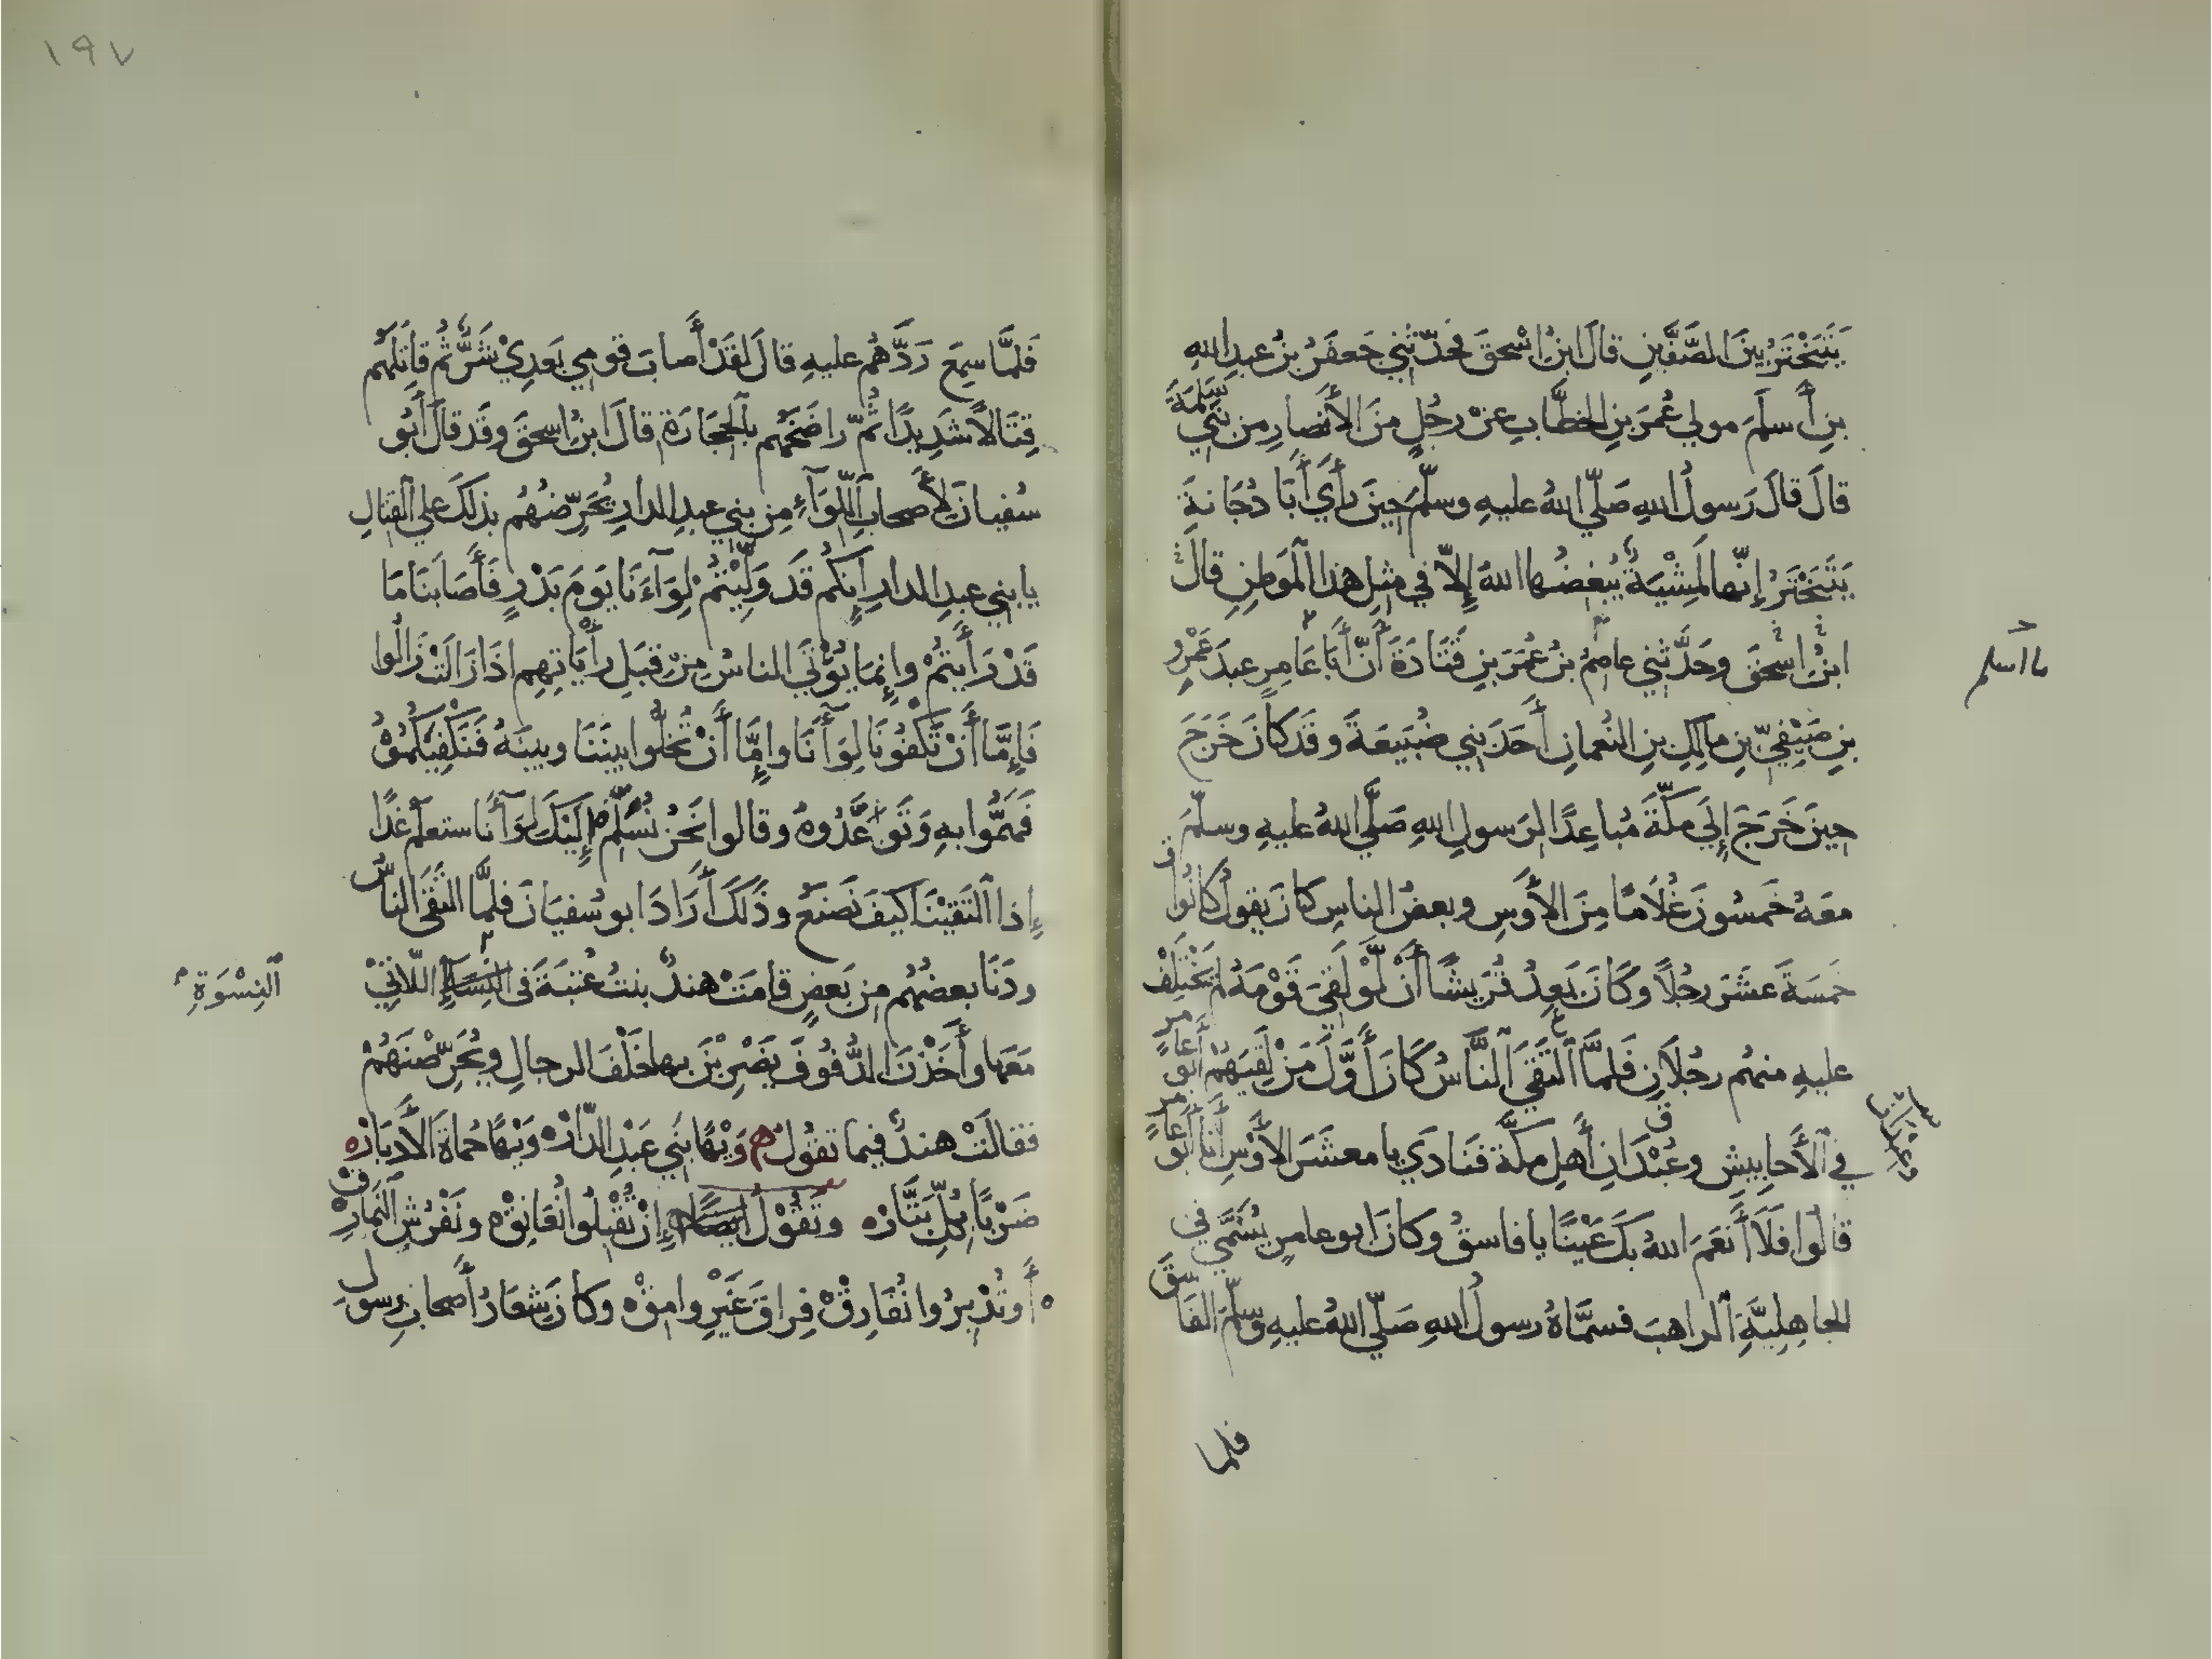 يَتَبَخْتَرُ بينَ الصَّفَّينِ قالَ ابنُ اسْحٰقَ فحدّثني جَعفَرُ بنُ عبدِ اللهِ
بنِ أَسلَمَ مولي عُمَرَ بنِ الخطَّابِ عنْ رجُلٍ منَ الأَنصارِ من بَنِي سَلِمَةَ
قالَ قالَ رَسولُ اللهِ صَلّي اللهُ عليهِ وسلّمَ حِينَ رأَي أَبَا دُجَانةَ
يَتَبَخْتَرُ إنّها لَمِشْيَةٌ يُبغِضُها اللهُ إلاّ في مِثلِ هذا الْمَوطِنِ قالَ
ابنُ اسْحٰقَ وحَدَّثني عاصِمُ بنُ عُمَرَ بنِ قَتَادَةَ أَنَّ أَبَا عَامِرٍ عبدَ عَمْرِو
بنِ صَيْفِيّ بنِ مالِكِ بنِ النُعمانِ أَحَدَ بني ضُبَيعَةَ وقَد كانَ خَرَجَ
حِينَ خَرَجَ إلَي مَكّةَ مُباعِدًا لرَسولِ اللهِ صَلَّي اللهُ عليهِ وسلّمَ
معَهُ خَمسُونَ غُلَامًا مِنَ الأَوسِ وبعضُ الناسِ كانَ يَقولُ كانُوا
خَمسَةَ عشَرَ رجُلاً وكَانَ يَعِدُ قُرَيشًا أَنْ لَوْ لَقِيَ قَوْمَهُ لم يَخْتَلِفْ
عليهِ منهُم رجُلاَنِ فَلمَّا الْتَقَي النَّاسُ كَانَ أَوَّلَ مَنْ لَقِيَهُمْ أَبُو عَامرٍ
في الأَحابِيشِ وعُبْدَانِ أَهلِ مكَّةَ فنَادَي يا معشَرَ الأَوْسِ أَنا أَبُو عَامرٍ
قالُوا فَلَا أَنعَمَ اللهُ بكَ عَيْنًا يا فاسقُ وكانَ ابو عامرٍ يُسَمَّي في
الجاهِلِيَّةِ الراهبَ فسمَّاهُ رسولُ اللهِ صَلّي اللهُ عليهِ وَسلّمَ الفَاسقَ
فلما
ما اسلم
١٩٧
فَلمَّا سمِعَ رَدَّهُم عليهِ قالَ لقَدْ أَصابَ قومِي بَعدِيْ شَرٌّ ثُم قاتَلَهُم
قِتَالاً شَدِيدًا ثُمّ راضَخَهُم بالحِجَارَةِ قالَ ابنُ اسحٰقَ وقَد قالَ أَبُو
سُفيانَ لأَصحابِ اللِّوَآءِ مِن بني عبدِ الدارِ يُحَرِّضُهُم بذلكَ علي القتالِ
يا بني عبدِ الدارِ إِنكُم قَد وَلِّيْتُمْ لِوَآءَنَا يَومَ بَدْرٍ فَأَصَابَنَا مَا
قَدْ رَأَيتُمْ وإِنمَا يُؤْتَي الناسُ مِنْ قِبَلِ رأَيَاتِهِم اذَا زَالَتْ زَالُوا
فَإِمَّا أَنْ تَكْفُونَا لِوَآءَنَا وإِمَّا أَنْ تُخَلُّوا بينَنَا وبينَهُ فَنَكْفِيكُمُوْهُ
فَهَمُّوا بهِ وَتَوَاعَدُوهُ وقالوا نَحنُ نُسَلِّمُ إِلَيْكَ لِوَآءَنَا ستعلَمُ غدًا
إِذا الْتَقَيْنَا كيفَ نَصنَعُ وذَلكَ أَرَادَ ابو سُفيَانَ فلمَّا التَقَي الناسُ
ودَنَا بعضُهُم مِن بَعضٍ قامَتْ هندٌ بنتُ عُتبَةَ في النِّسَآءِ اللاَّتِيْ
النِسْوَةِ
مَعَها وأَخَذْنَ الدُّفُوفَ يَضرِبْنَ بها خَلْفَ الرجالِ ويُحَرِّضْنَهُمْ
فقالَتْ هندٌ فيما تقُولُ وَيْهًا بَنِي عَبْدِ الدَّارْ وَيْهًا حُماةَ الأَدبَارْ
ضَرْبًا بِكُلِّ بَتَّارْ وتَقُوْلُ ايضًا إِنْ تُقْبِلُوا نُعَانِقْ ونَفْرُشِ النَمَارِقْ
أَو تُدْبِرُوا نُفَارِقْ فِراقَ غَيْرِ وامِقْ وكانَ شِعَارُ أَصحابِ رسولِ